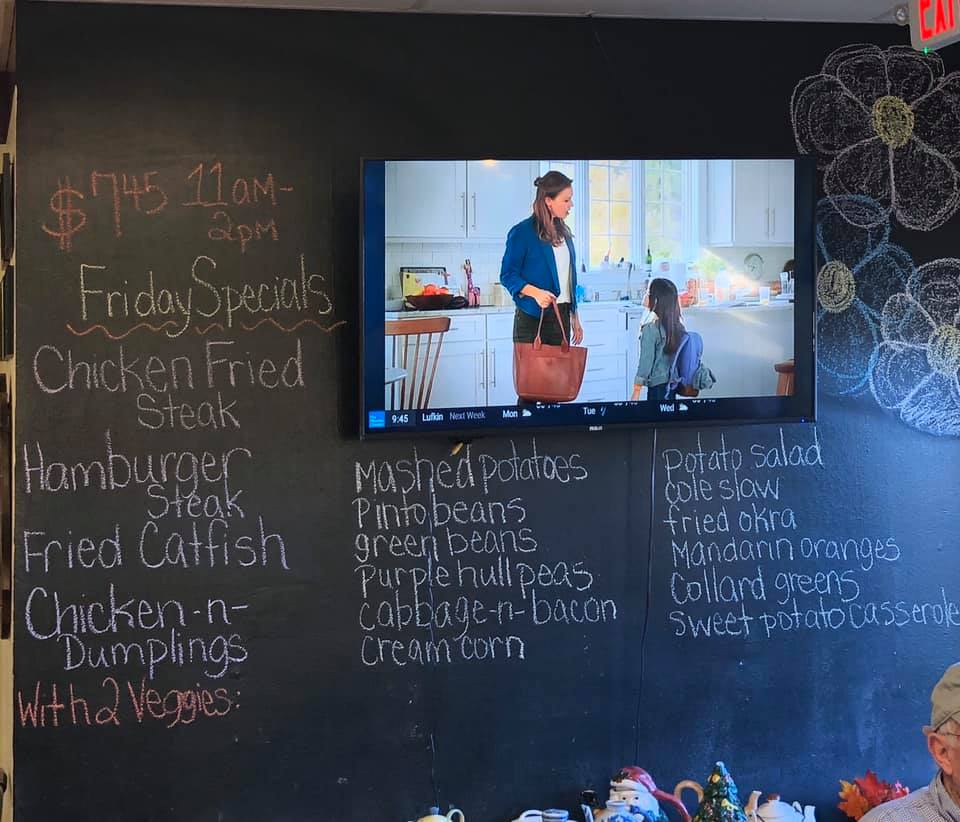 EXIT
$7.45 11am-
2pm
Friday Specials
Chicken Fried
Steak
Hamburger
Steak
Fried Catfish
Chicken-n-
Dumplings
With 2 Veggies:
9:45 Lufkin Next Week Mon Tue Wed
PHILIPS
Mashed potatoes
Pinto beans
green beans
Purple hull peas
cabbage-n-bacon
cream corn
potato salad
cole slaw
fried okra
Mandarin oranges
Collard greens
sweet potato casserole